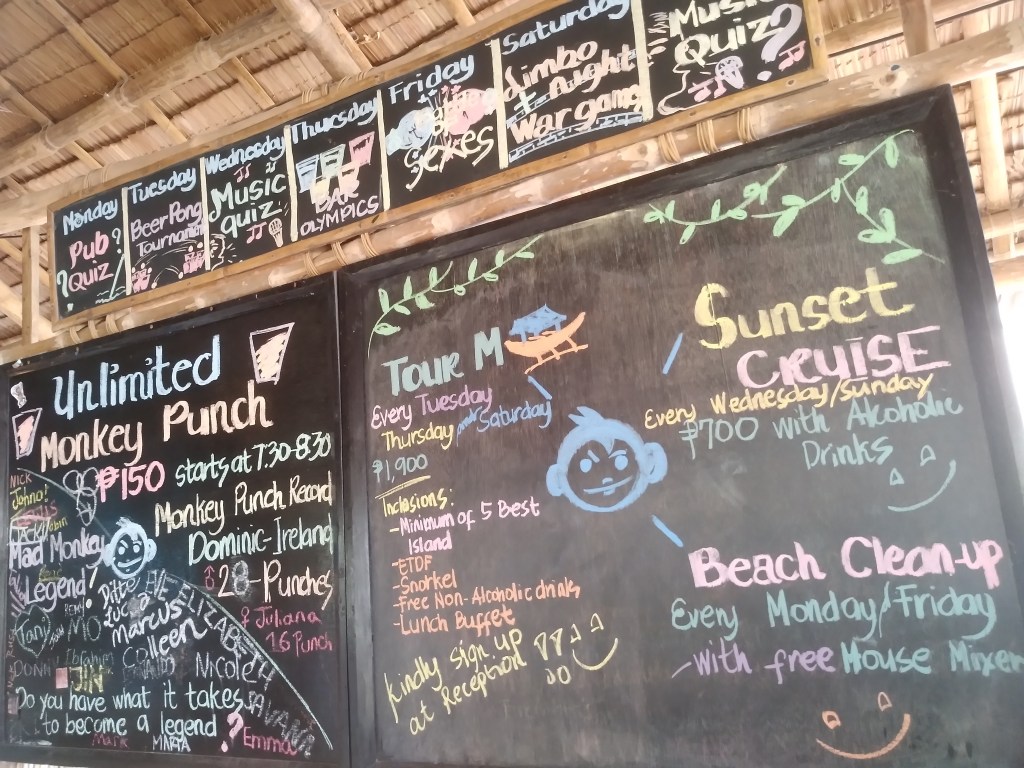 Monday
Pub ?
? Quiz
Tuesday
Beer Pong
Tournament
Wednesday
Music
quiz
Thursday
BAR
OLYMPICS
Friday
Sexes
Saturday
Limbo
night
War game
Music
Quiz?
Unlimited
Monkey Punch
₱150 starts at 7:30-8:30
Monkey Punch Record
Dominic-Ireland
♂ 28-Punches
♀ Juliana
16 Punch
NICK
John!
Mad Monkey
Legend!
Ditte
Luca
EVE
ELIZABETH
Marcus
Colleen
Nicole
Tani
MO
JIN
Do you have what it takes
to become a legend ?
MARTA
Emma
Tour M
Every Tuesday
Thursday and Saturday
₱1,900
Inclusions:
-Minimum of 5 Best
Island
-ETDF
-Snorkel
-Free Non-Alcoholic drinks
-Lunch Buffet
kindly sign up
at Reception
Sunset
CRUISE
Every Wednesday/Sunday
₱700 with Alcoholic
Drinks
Beach Clean-up
Every Monday/Friday
-with free House Mixer